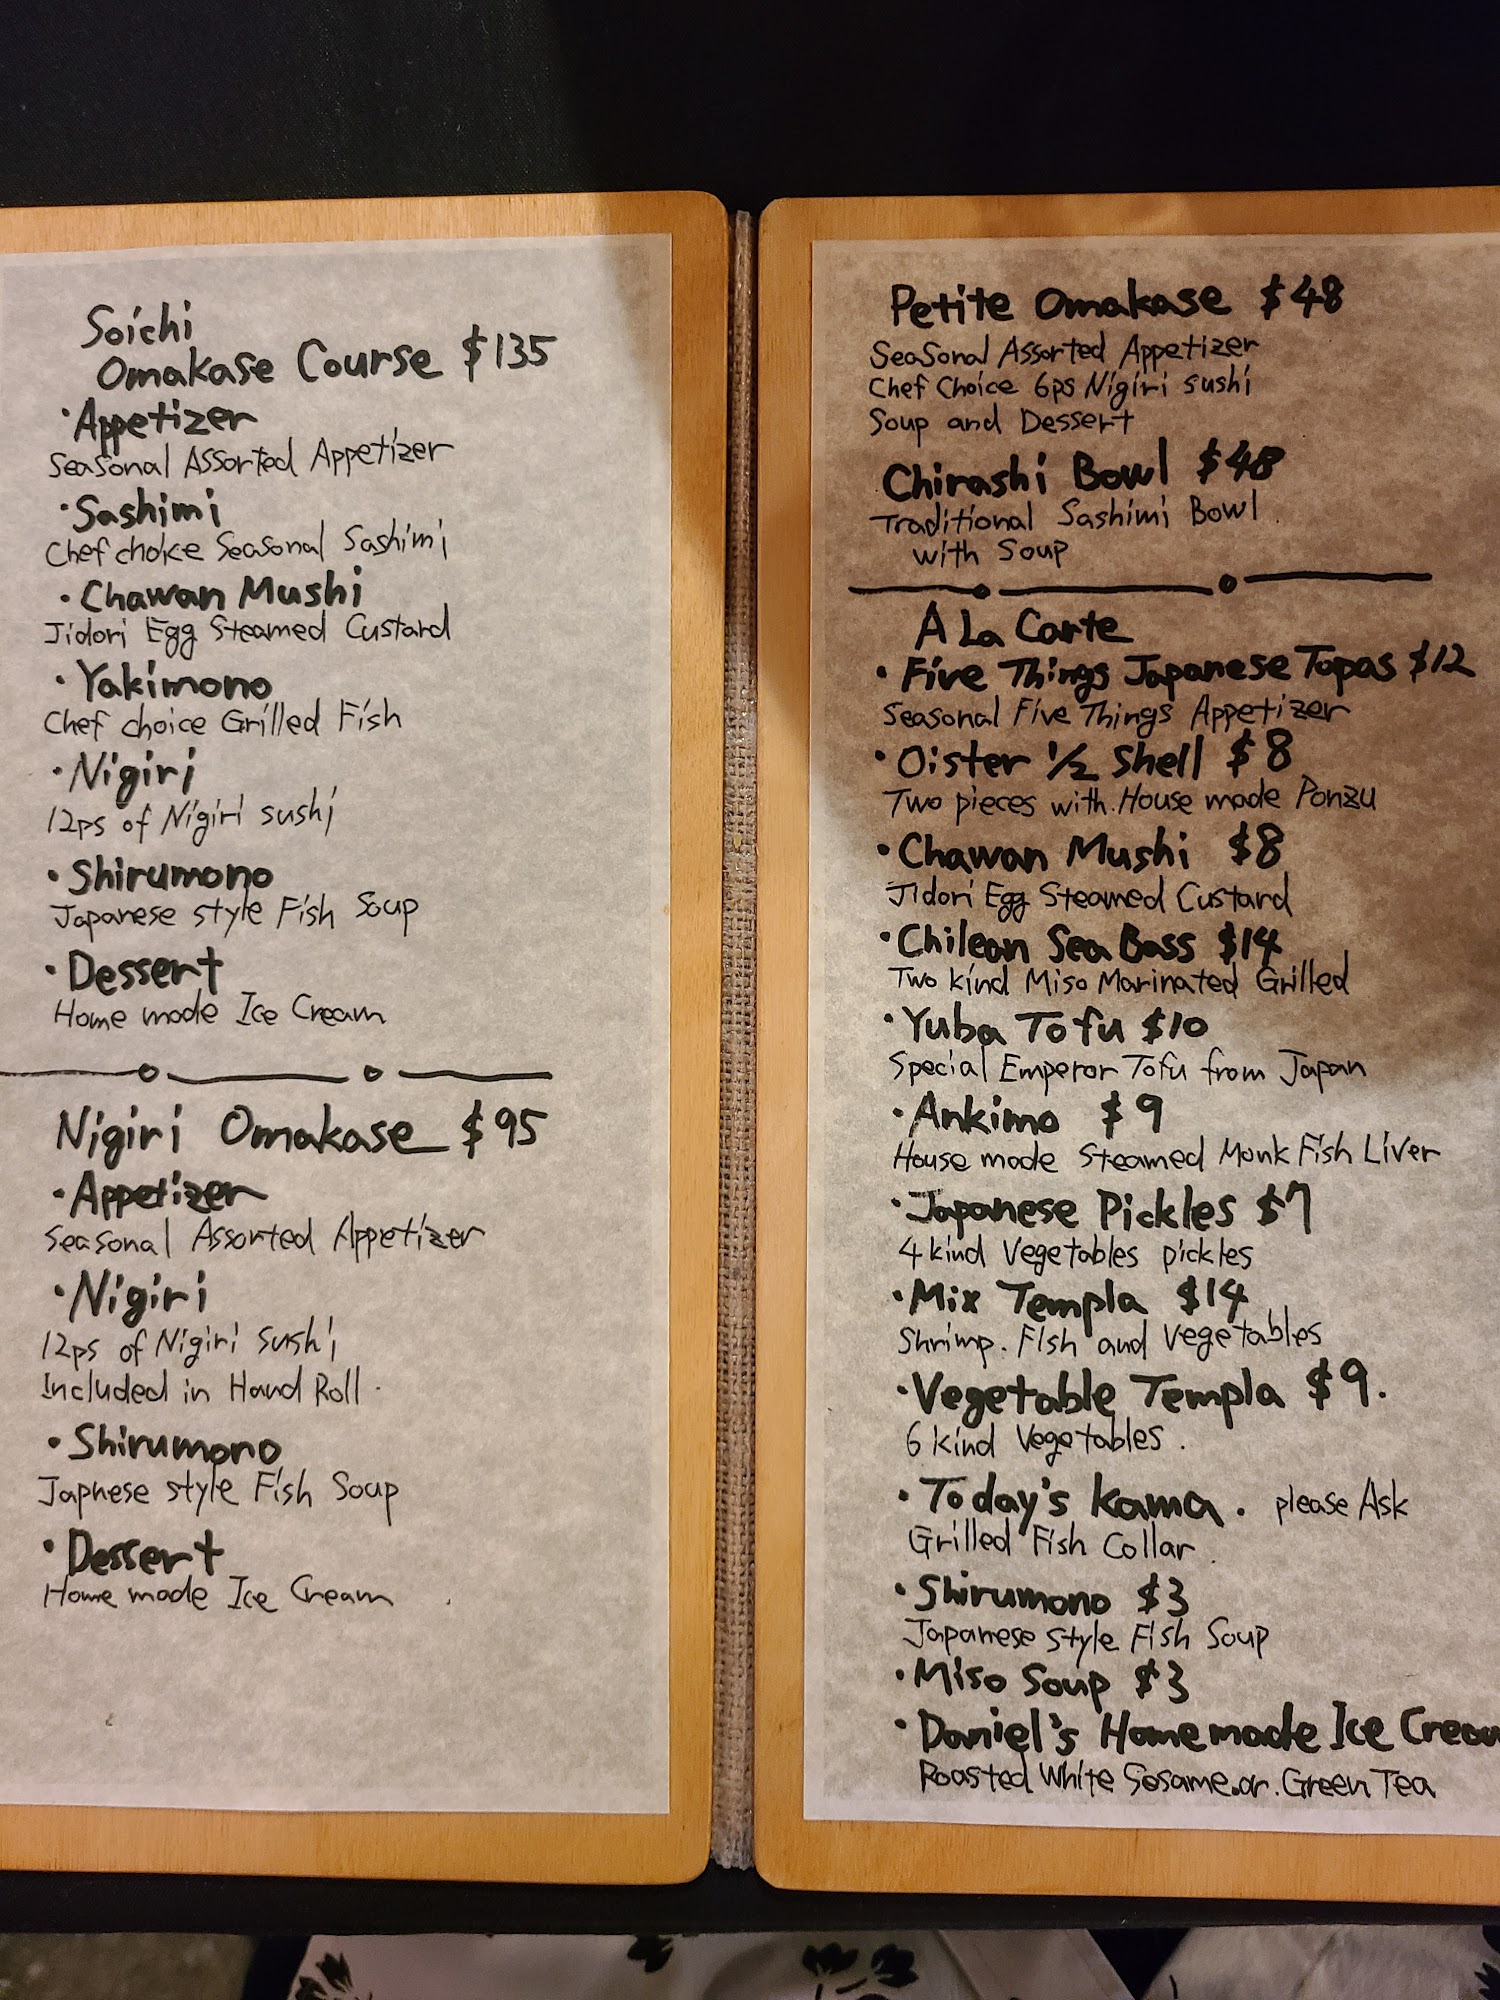 Soichi
Omakase Course $135
· Appetizer
Seasonal Assorted Appetizer
· Sashimi
Chef choice Seasonal Sashimi
· Chawan Mushi
Jidori Egg Steamed Custard
· Yakimono
Chef choice Grilled Fish
· Nigiri
12ps of Nigiri sushi
· Shirumono
Japanese style Fish Soup
· Dessert
Home made Ice Cream
Nigiri Omakase $95
· Appetizer
Seasonal Assorted Appetizer
· Nigiri
12ps of Nigiri sushi
Included in Hand Roll.
· Shirumono
Japnese style Fish Soup
· Dessert
Home made Ice Cream
Petite Omakase $48
Seasonal Assorted Appetizer
Chef Choice 6ps Nigiri sushi
Soup and Dessert
Chirashi Bowl $48
Traditional Sashimi Bowl.
with Soup
A La Carte
· Five Things Japanese Tapas $12
Seasonal Five Things Appetizer
· Oister 1/2 Shell $8
Two pieces with House made Ponzu
· Chawan Mushi $8
Jidori Egg Steamed Custard
· Chilean Sea Bass $14
Two kind Miso Marinated Grilled
· Yuba Tofu $10
Special Emperor Tofu from Japan
· Ankimo $9
House made Steamed Monk Fish Liver
· Japanese Pickles $7
4 kind Vegetables pickles
· Mix Templa $14
Shrimp. Fish and Vegetables
· Vegetable Templa $9.
6 kind Vegetables.
· Today's kama. please Ask
Grilled Fish Collar.
· Shirumono $3
Japanese style Fish Soup
· Miso Soup $3
· Daniel's Home made Ice Cream
Roasted White Sesame.or.Green Tea